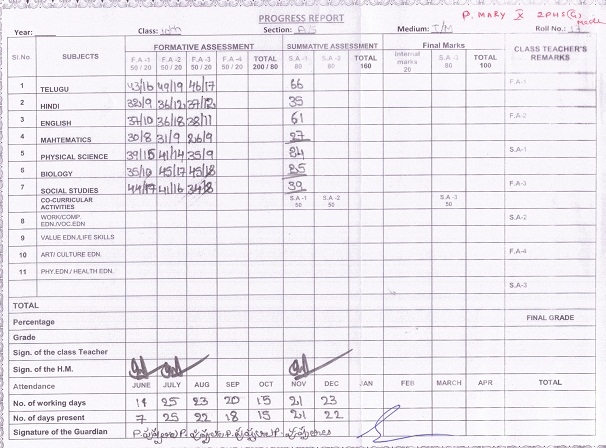 PROGRESS REPORT P. MARY X 2PHS(G)
Year: Class: 10th Section: Medium: T/M Roll No.: 13
Sl.No. SUBJECTS FORMATIVE ASSESSMENT SUMMATIVE ASSESSMENT Final Marks CLASS TEACHER'S REMARKS
F.A -1 50 / 20 F.A -2 50 / 20 F.A -3 50 / 20 F.A -4 50 / 20 TOTAL 200 / 80 S.A -1 80 S.A -2 80 TOTAL 160 Internal marks 20 S.A -3 80 TOTAL 100
1 TELUGU 43/16 49/19 46/17 66 F.A-1
2 HINDI 38/9 36/12 37/12 35
3 ENGLISH 37/10 36/18 38/11 61 F.A-2
4 MAHTEMATICS 30/8 31/9 26/9 27
5 PHYSICAL SCIENCE 39/15 41/14 35/9 34 S.A-1
6 BIOLOGY 35/10 45/17 45/18 35
7 SOCIAL STUDIES 44/17 41/16 34/8 39 F.A-3
CO-CURRICULAR ACTIVITIES S.A -1 50 S.A -2 50 S.A -3 50
8 WORK/COMP. EDN./VOC.EDN S.A-2
9 VALUE EDN./LIFE SKILLS
10 ART/ CULTURE EDN. F.A-4
11 PHY.EDN / HEALTH EDN.
S.A-3
TOTAL
Percentage FINAL GRADE
Grade
Sign. of the class Teacher
Sign. of the H.M.
Attendance JUNE JULY AUG SEP OCT NOV DEC JAN FEB MARCH APR TOTAL
No. of working days 25 23 20 15 21 23
No. of days present 7 25 22 18 15 21 22
Signature of the Guardian